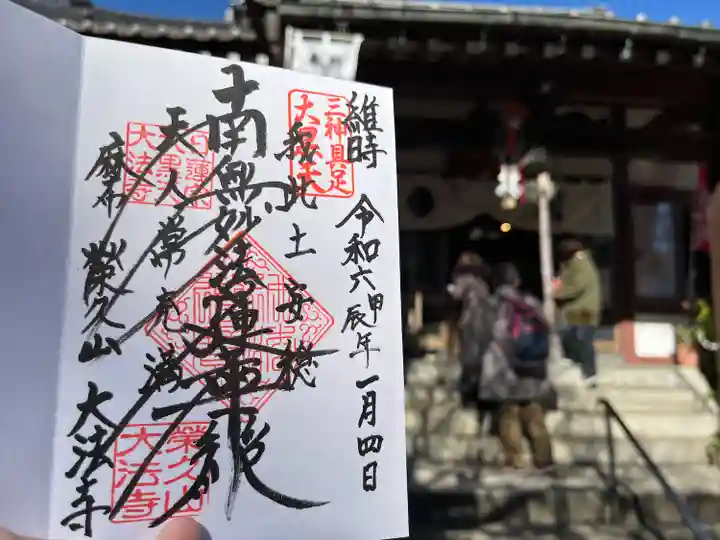 維時 令和六甲辰年一月四日
三神具足
大黒天
我此土安穏
南無妙法蓮華経
天人常充満
日蓮宗
大黒天
大法寺
麻布 榮久山 大法寺
榮久山
大法寺